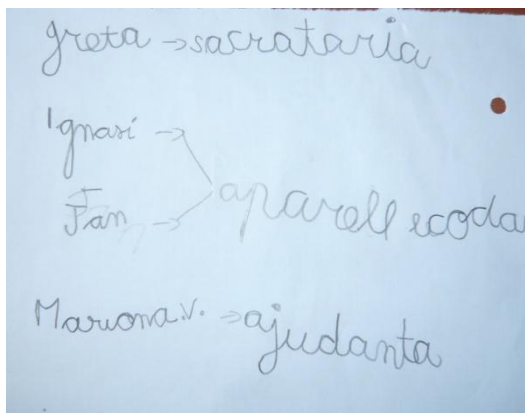 Greta → sacrataria
Ignasi →
aparell ecoda
Fan →
Mariona.V. → ajudanta